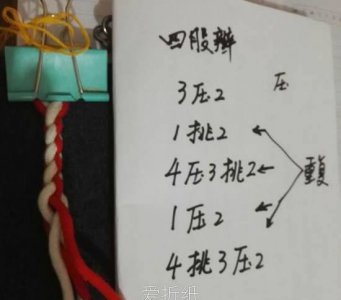 四股辫
3压2 压
1挑2
4压3挑2
重复
1压2
4挑3压2
爱折纸